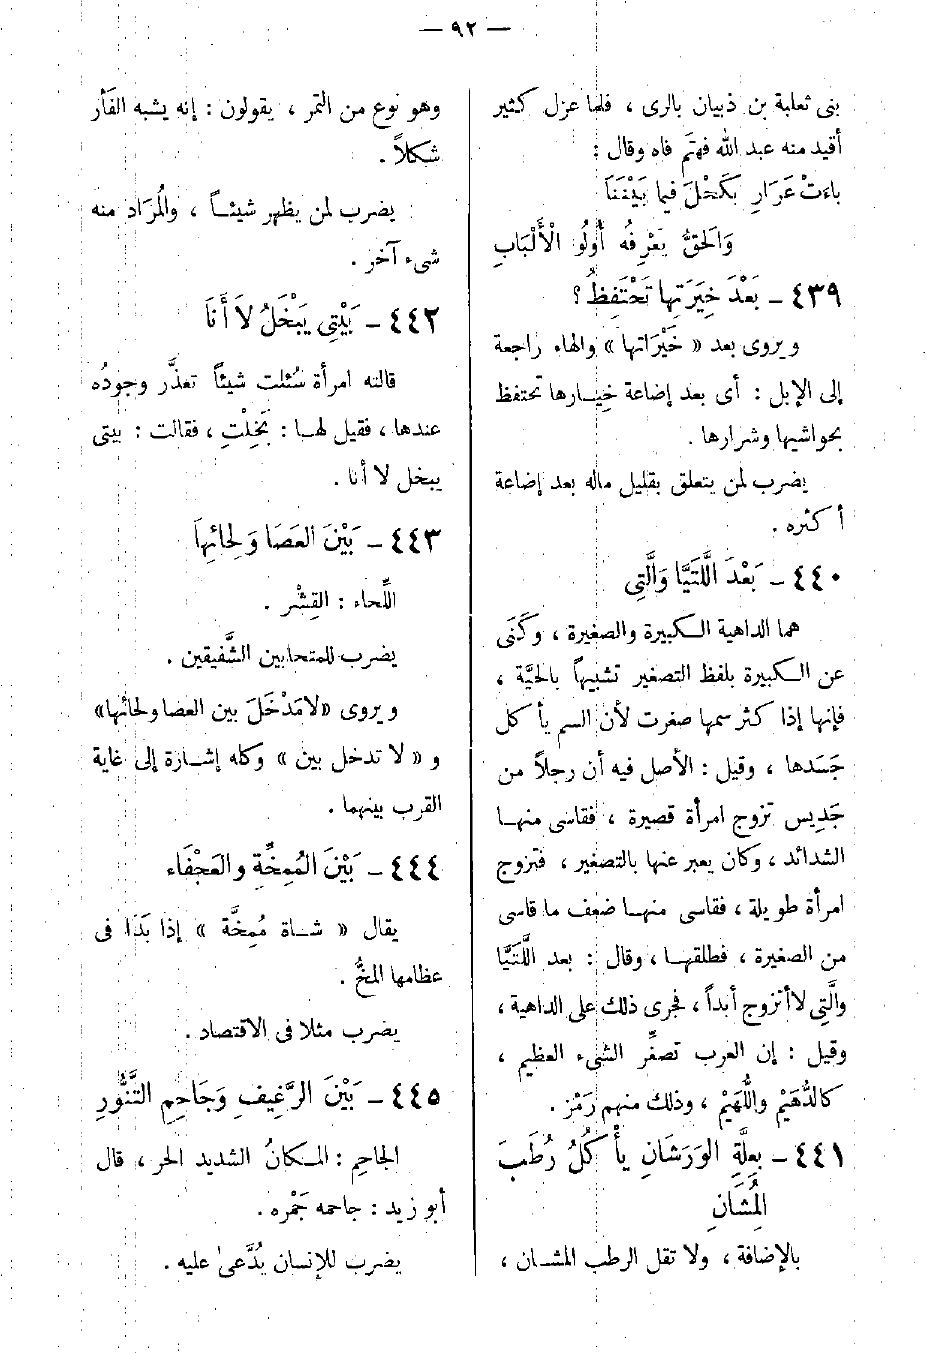 — ٩٢ —
بنى ثعلبة بن ذبيان بالرى ، فلما عزل كثير
أقيد منه عبد الله فهتم فاه وقال :
باءَتْ عَرَارِ بِكَحْلَ فِيمَا بَيْنَنَا
وَالحَقُّ يَعْرِفُه أُولُو الْأَلْبَابِ
٤٣٩ — بَعْدَ خِيَرَتِهَا تَحْتَفِظُ ؟
ويروى بعد « خَيْرَاتها » والهاء راجعة
إلى الإبل : أى بعد إضاعة خِيَارها تحتفظ
بحواشيها وشرارها .
يضرب لمن يتعلق بقليل ماله بعد إضاعة
أكثره .
٤٤٠ — بَعْدَ اللَّتَيَّا وَالَّتِى
هما الداهية الكبيرة والصغيرة ، وكَنَى
عن الكبيرة بلفظ التصغير تشبيهاً بالحَيَّة ،
فإنها إذا كثر سمها صغرت لأن السم يأكل
جَسَدها ، وقيل : الأصل فيه أن رجلاً من
جَدِيس تزوج امرأة قصيرة ، فقاسى منها
الشدائد ، وكان يعبر عنها بالتصغير ، فتزوج
امرأة طويلة ، فقاسى منها ضعف ما قاسى
من الصغيرة ، فطلقها ، وقال : بعد اللَّتَيَّا
والَّتِى لا أتزوج أبداً ، فجرى ذلك على الداهية ،
وقيل : إن العرب تصغِّر الشىء العظيم ،
كالدُّهَيْم واللُّهَيْم ، وذلك منهم رَمْز .
٤٤١ — بِعِلَّةِ الوَرَشَانِ يأْكُلُ رُطَبَ
المُِشَانِ
بالإضافة ، ولا تقل الرطب المشان ،
وهو نوع من التمر ، يقولون : إنه يشبه الفَأر
شكلاً .
يضرب لمن يظهر شيئاً ، والمُرَاد منه
شىء آخر .
٤٤٢ — بَيْتِى يَبْخَلُ لاَ أَنَا
قالته امرأة سُئلت شيئاً تعذَّر وجودُه
عندها ، فقيل لها : بَخِلْتِ ، فقالت : بيتى
يبخل لا أنا .
٤٤٣ — بَيْنَ العَصَا وَلِحَائِهَا
اللِّحاء : القِشْر .
يضرب للمتحابين الشَّفيقين .
ويروى «لا مَدْخَلَ بين العصا ولحائها»
و « لا تدخل بين » وكله إشارة إلى غاية
القرب بينهما .
٤٤٤ — بَيْنَ المُمِخَّةِ والعَجْفَاء
يقال « شاة مُمِخَّة » إذا بَدَا فى
عظامها المخُّ .
يضرب مثلا فى الاقتصاد .
٤٤٥ — بَيْنَ الرَّغِيفِ وَجَاحِمِ التَّنُّورِ
الجاحِم : المكانُ الشديد الحر ، قال
أبو زيد : جاحمه جَمْره .
يضرب للإنسان يُدَّعىٰ عليه .